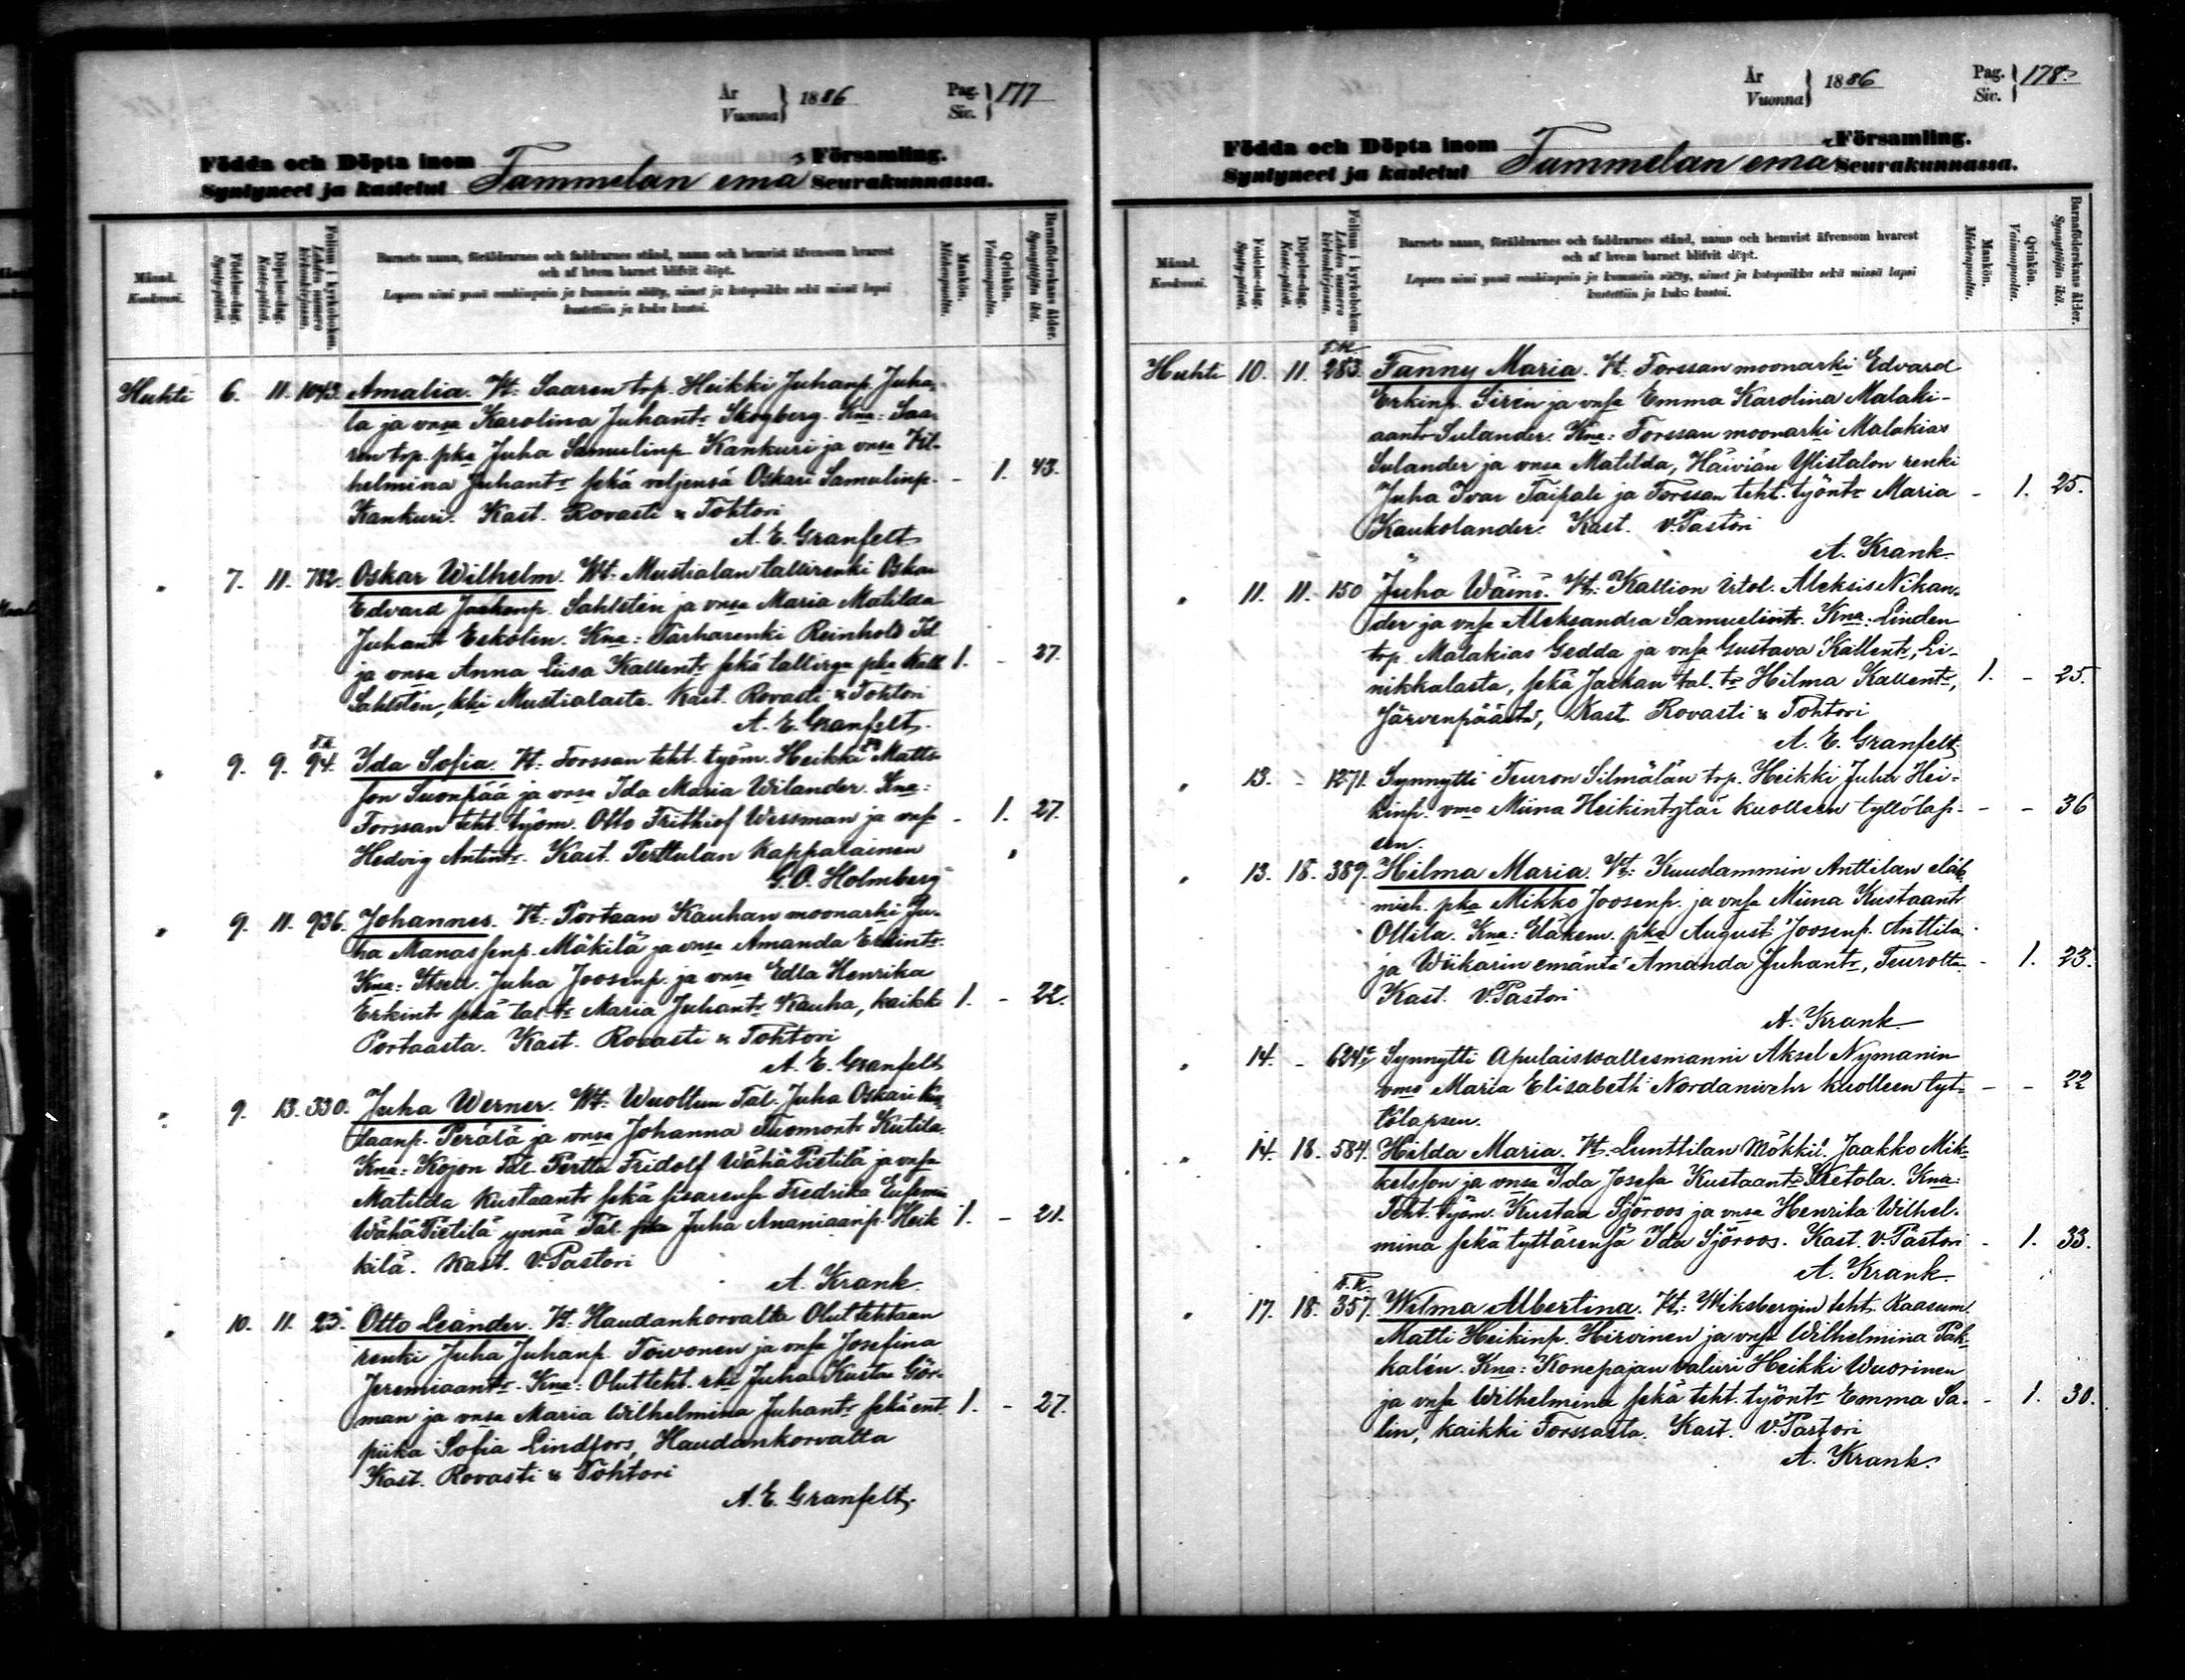 År
Vuonna } 1886
Pag.
Siv. } 177
Födda och Döpta inom Tammelan emä Församling.
Syntyneet ja kastetut Seurakunnassa.
Månad. Kuukausi.
Födelse-dag. Synty-päivä.
Döpelse-dag. Kaste-päivä.
Folium i kyrkoboken. Lehden numero kirkonkirjassa.
Barnets namn, föräldrarnes och faddrarnes stånd, namn och hemvist äfvensom hvarest
och af hvem barnet blifvit döpt.
Lapsen nimi ynnä vanhinpain ja kummein sääty, nimet ja kotopaikka sekä missä lapsi
kastettiin ja kuka kastoi.
Mankön. Miehenpuolta.
Qvinkön. Vaimonpuolta.
Barnaföderskans ålder. Synnyttäjän ikä.
Huhti 6. 11. 1043. Amalia. Vt: Saaren trp. Heikki Juhanp. Juha-
la ja vnsa Karolina Juhantr Skogberg. Kna: Saa-
ren trp. pka Juha Samulinp. Kankuri ja vnsa Vil-
helmina Juhantr sekä veljensä Oskari Samulinp. - 1. 43.
Kankuri. Kast. Rovasti & Tohtori
A. E. Granfelt
" 7. 11. 782. Oskar Wilhelm. Vt: Mustialan tallirenki Oskar
Edvard Jaakonp. Sahlstén ja vnsa Maria Matilda
Juhantr Eskolin. Kna: Tarharenki Reinhold
ja vnsa Anna Liisa Kallentr sekä tallirga pka Kalle 1. - 27.
Sahlstén, kki Mustialasta. Kast. Rovasti & Tohtori
A. E. Granfelt.
" 9. 9. T.K. 94. Ida Sofia. Vt: Forssan teht. työm. Heikki Matts-
son Suonpää ja vnsa Ida Maria Wilander. Kna:
Forssan teht. työm. Otto Frithiof Wessman ja vnsa - 1. 27.
Hedvig Antintr. Kast. Perttulan kappalainen
G. A. Holmberg
" 9. 11. 936. Johannes. Vt: Portaan Kauhan moonarki Ju-
ha Manassenp. Mäkilä ja vnsa Amanda Erkintr.
Kna: Itsell. Juha Joosenp. ja vnsa Edla Henrika
Erkintr sekä tal. tr Maria Juhantr Kauha, kaikki 1. - 22.
Portaasta. Kast. Rovasti & Tohtori
A. E. Granfelt
" 9. 13. 330. Juha Werner. Vt: Wuoltun Tal. Juha Oskari Kus-
taanp. Perälä ja vnsa Johanna Tuomontr Kutila.
Kna: Kojon Tal. Pertta Fridolf WähäPietilä ja vnsa
Matilda Kustaantr sekä sisarensa Fredrika Eufemia
WähäPietilä ynnä Tal. pka Juha Ananiaanp. Heik- 1. - 21.
kilä. Kast. V. Pastori
A. Krank.
" 10. 11. 23. Otto Leander. Vt: Haudankorvalta Oluttehtaan
renki Juha Juhanp. Toivonen ja vnsa Josefina
Jeremiaantr. Kna: Olutteht. rki Juha Kusta Gör-
man ja vnsa Maria Wilhelmina Juhantr sekä ent. 1. - 27.
piika Sofia Lindfors, Haudankorvalta
Kast. Rovasti & Tohtori
A. E. Granfelt.
År
Vuonna } 1886
Pag.
Siv. } 178.
Födda och Döpta inom Tammelan emä Församling.
Syntyneet ja kastetut Seurakunnassa.
Månad. Kuukausi.
Födelse-dag. Synty-päivä.
Döpelse-dag. Kaste-päivä.
Folium i kyrkoboken. Lehden numero kirkonkirjassa.
Barnets namn, föräldrarnes och faddrarnes stånd, namn och hemvist äfvensom hvarest
och af hvem barnet blifvit döpt.
Lapsen nimi ynnä vanhinpain ja kummein sääty, nimet ja kotopaikka sekä missä lapsi
kastettiin ja kuka kastoi.
Mankön. Miehenpuolta.
Qvinkön. Vaimonpuolta.
Barnaföderskans ålder. Synnyttäjän ikä.
Huhti 10. 11. T.K. 283. Fanny Maria. Vt: Forssan moonarki Edvard
Erkinp. Sirén ja vnsa Emma Karolina Malaki-
aantr Sulander. Kna: Forssan moonarki Malakias
Sulander ja vnsa Matilda, Häiviän Ylistalon renki
Juha Ivar Taipale ja Forssan teht. työntr Maria - 1. 25.
Kaukolander. Kast. V. Pastori
A. Krank.
" 11. 11. 150 Juha Wäinö. Vt: Kallion irtol. Aleksis Nikan-
der ja vnsa Aleksandra Samuelintr. Kna: Linden
trp. Malakias Gedda ja vnsa Gustava Kallentr, Li-
nikkalasta, sekä Jaakan tal. tr Hilma Kallentr, 1. - 25.
Järvenpäästä, Kast. Rovasti & Tohtori
A. E. Granfelt.
" 13. - 1271. Synnytti Teuron Silmälän trp. Heikki Juha Hei-
kinp. vmo Miina Heikintytär kuolleen tyttölap- - - 36
sen.
" 13. 18. 389. Hilma Maria. Vt: Kuudammin Anttilan eläk.
mieh. pka Mikko Joosenp. ja vnsa Miina Kustaantr
Ollila. Kna: Eläkem. pka August Joosenp. Anttila
ja Wiikarin emäntä Amanda Juhantr, Teurolta - 1. 23.
Kast. V. Pastori
A. Krank.
" 14. - 624 Synnytti Apulaisvallesmanni Aksel Nymanin
vmo Maria Elisabeth Nordanwehr kuolleen tyt- - - 22
tölapsen.
" 14. 18. 584. Hilda Maria. Vt: Lunttilan Mökkil. Jaakko Mik-
kelsson ja vnsa Ida Josefa Kustaantr Ketola. Kna:
Teht. työm. Kustaa Sjöroos ja vnsa Henrika Wilhel-
mina sekä tyttärensä Ida Sjöroos. Kast. V. Pastori - 1. 33.
A. Krank.
" 17. 18. T.K. 357. Wilma Albertina. Vt: Wiksbergin teht. Kaasum.
Matti Heikinp. Hirvinen ja vnsa Wilhelmina Pak-
kalén. Kna: Konepajan valuri Heikki Wuorinen
ja vnsa Wilhelmina sekä teht. työntr Emma Sa- - 1. 30.
lin, kaikki Forssasta. Kast. V. Pastori
A. Krank.